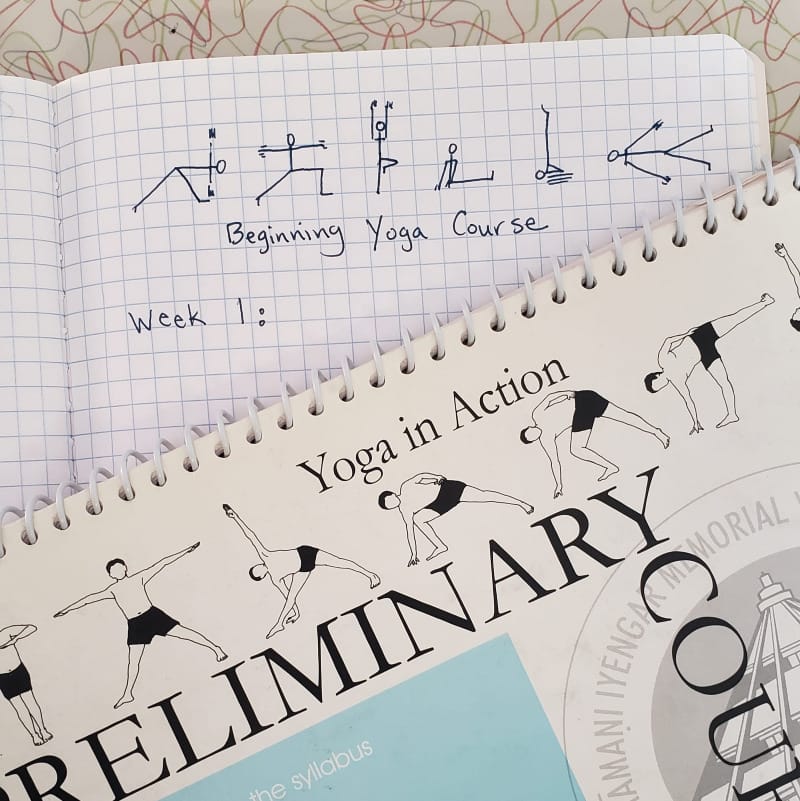 Beginning Yoga Course
Week 1:
Yoga in Action
PRELIMINARY
COU
the syllabus
AMANI IYENGAR MEMORIAL